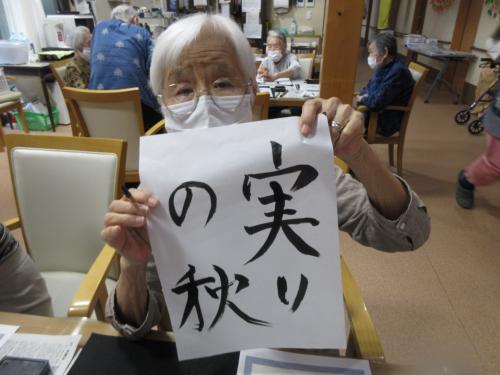 実り
の秋